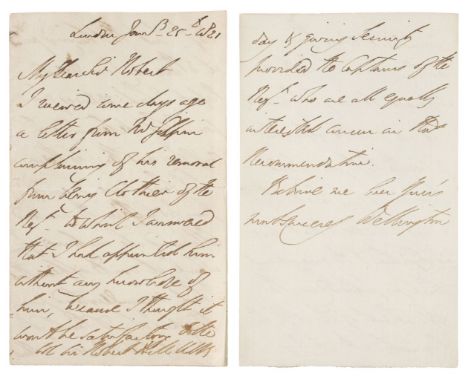 London Jany 25th 1821
My Dear Sir Herbert
I received some days ago
a letter from Mr
complaining of his removal
from being Clothier of the
Regt. to which I answered
that I had appointed him
without any knowledge of
him, because I thought it
would be satisfactory to the
Sir Herbert
day & giving
provided the Captains of the
Regt. who are all equally
interested concur in that
Recommendation.
Believe me Ever Yours
most sincerely Wellington